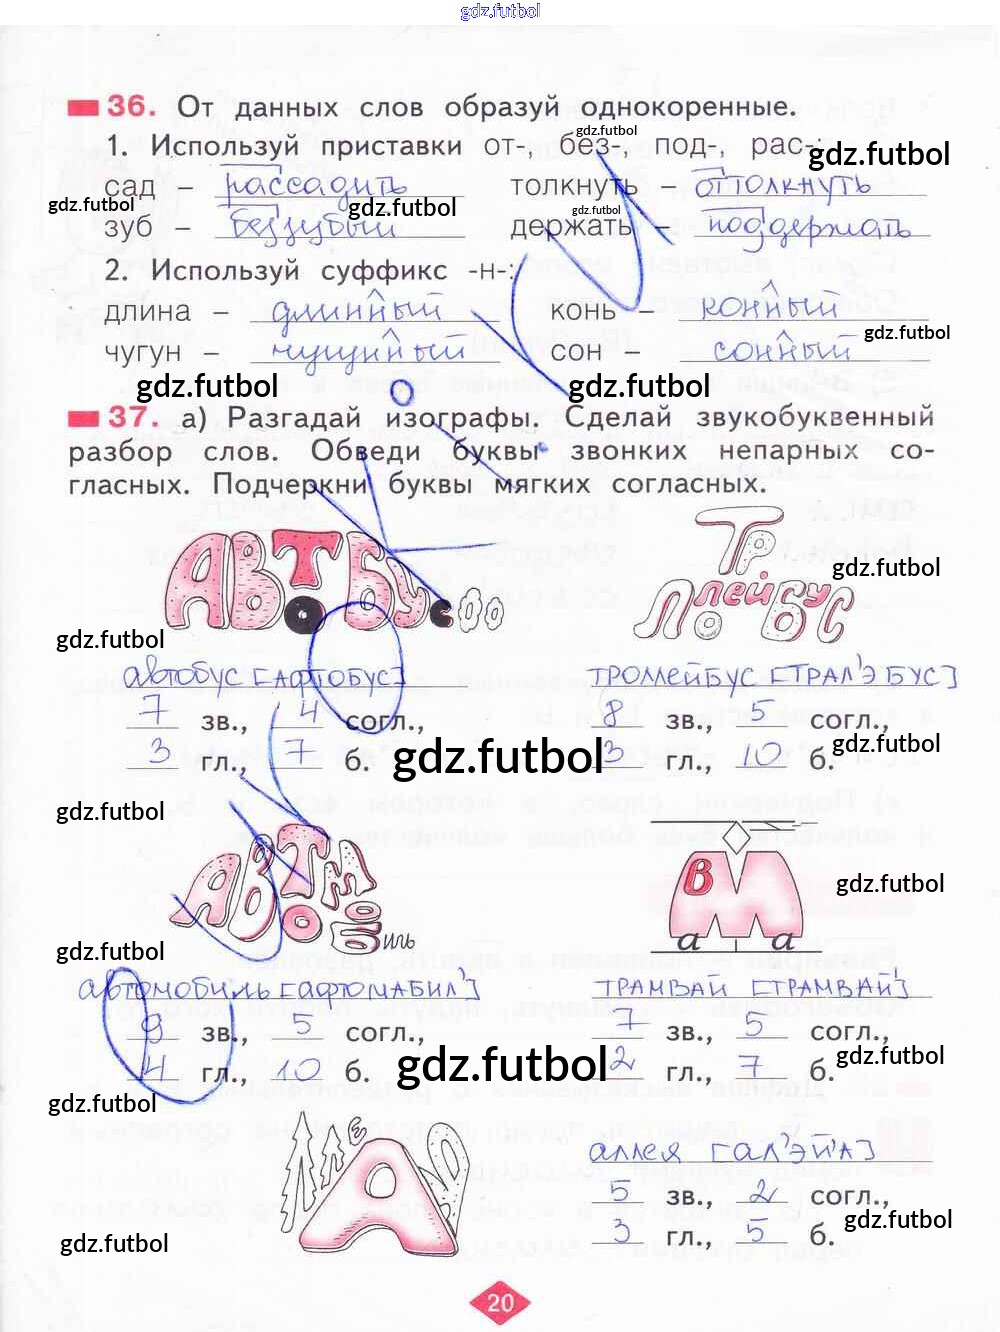 gdz.futbol
36. От данных слов образуй однокоренные.
gdz.futbol
1. Используй приставки от-, без-, под-, рас-:
gdz.futbol
сад – рассадить толкнуть – оттолкнуть
gdz.futbol gdz.futbol gdz.futbol
зуб – беззубый держать – поддержать
2. Используй суффикс -н-:
длина – длинный конь – конный
gdz.futbol
чугун – чугунный сон – сонный
gdz.futbol gdz.futbol
37. а) Разгадай изографы. Сделай звукобуквенный
разбор слов. Обведи буквы звонких непарных со-
гласных. Подчеркни буквы мягких согласных.
АВТОБУС ТРОЛЛЕЙБУС
gdz.futbol
gdz.futbol
автобус [АФТОБУС] ТРОЛЛЕЙБУС [ТРАЛ'ЭБУС]
7 зв., 4 согл., 8 зв., 5 согл.,
3 гл., 7 б. 3 гл., 10 б.
gdz.futbol gdz.futbol
gdz.futbol
АВТОМОБиль В а а
gdz.futbol
gdz.futbol
автомобиль [АФТОМАБИЛ'] ТРАМВАЙ [ТРАМВАЙ']
9 зв., 5 согл., 7 зв., 5 согл.,
4 гл., 10 б. 2 гл., 7 б.
gdz.futbol gdz.futbol
gdz.futbol
аллея [АЛ'ЭЙ'А]
5 зв., 2 согл.,
gdz.futbol
3 гл., 5 б.
gdz.futbol
20